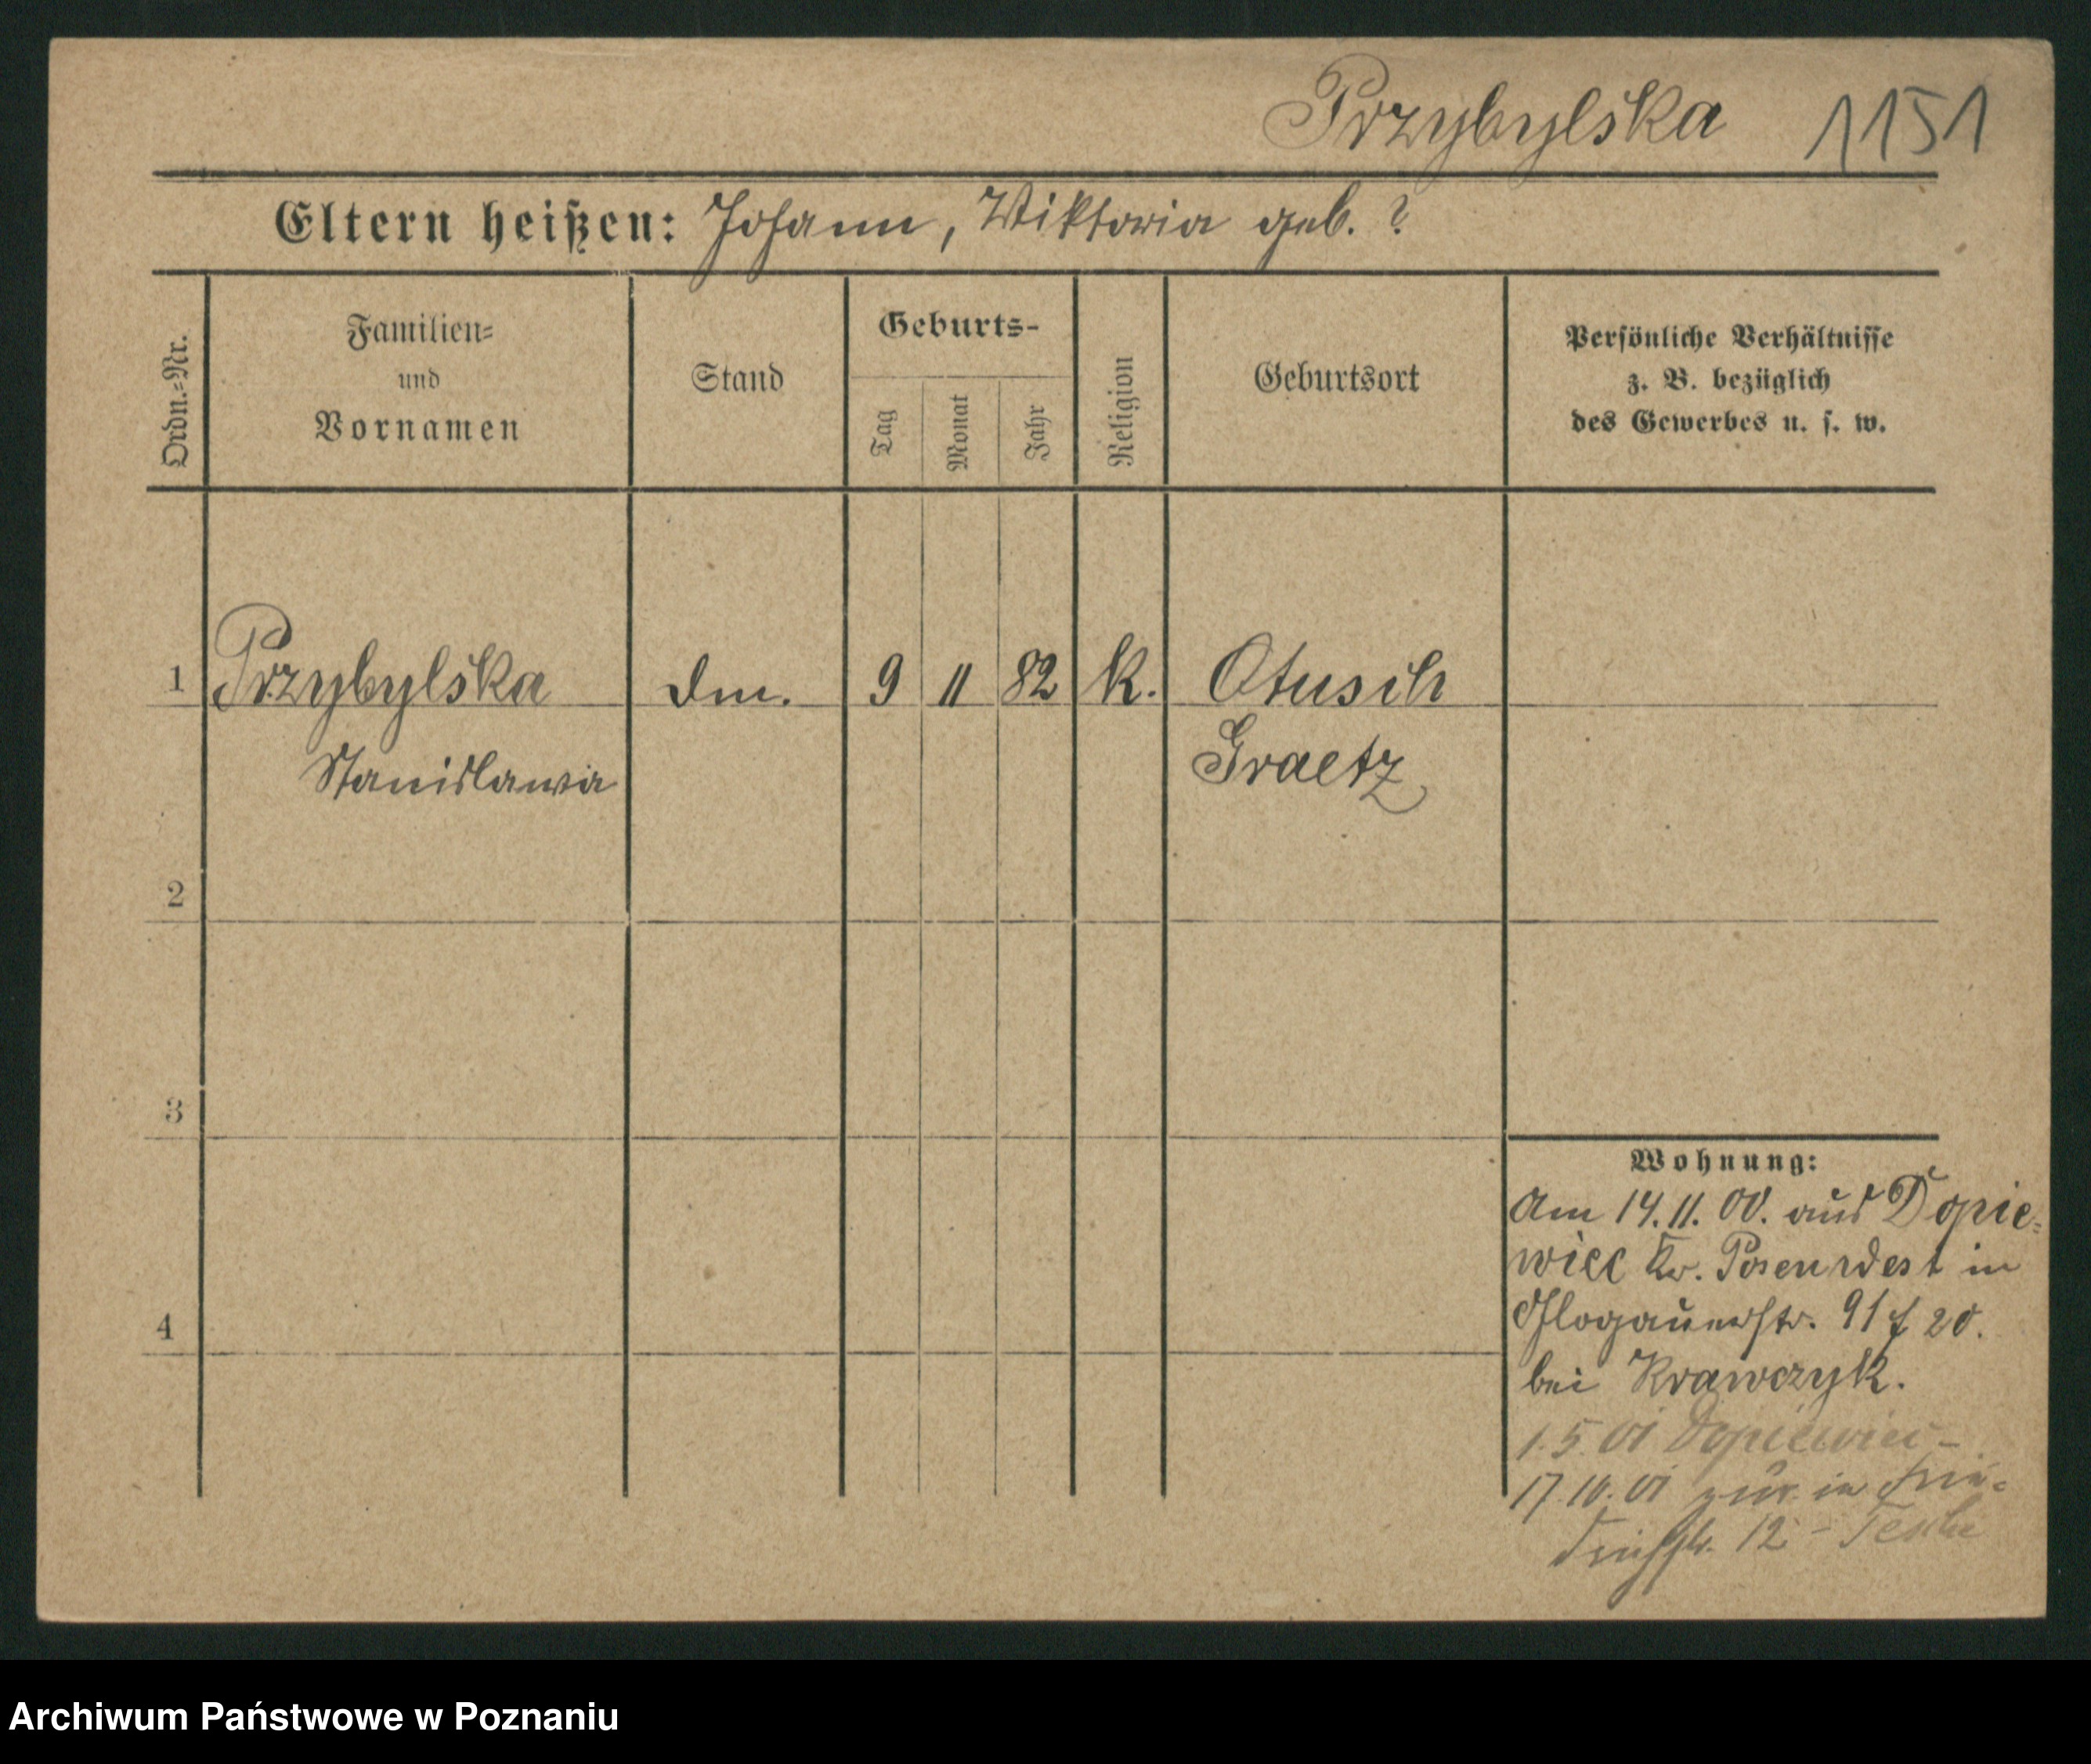 Przybylska 1151
Eltern heißen: Johann, Viktoria geb. ?
Ordn.=Nr.
Familien=
und
Vornamen
Stand
Geburts-
Tag
Monat
Jahr
Religion
Geburtsort
Persönliche Verhältnisse
z. B. bezüglich
des Gewerbes u. s. w.
1 Przybylska dm. 9 11 82 k. Otusch
Stanislawa Graetz
2
3
4
Wohnung:
Am 14.11.00. aus Dopie=
wiec Kr. Posen West in
Glogauerstr. 91 f 20.
bei Krawczyk.
1.5.01 Dopiewiec -
17.10.01 zur. in Frie=
drichstr. 12 -
Archiwum Państwowe w Poznaniu